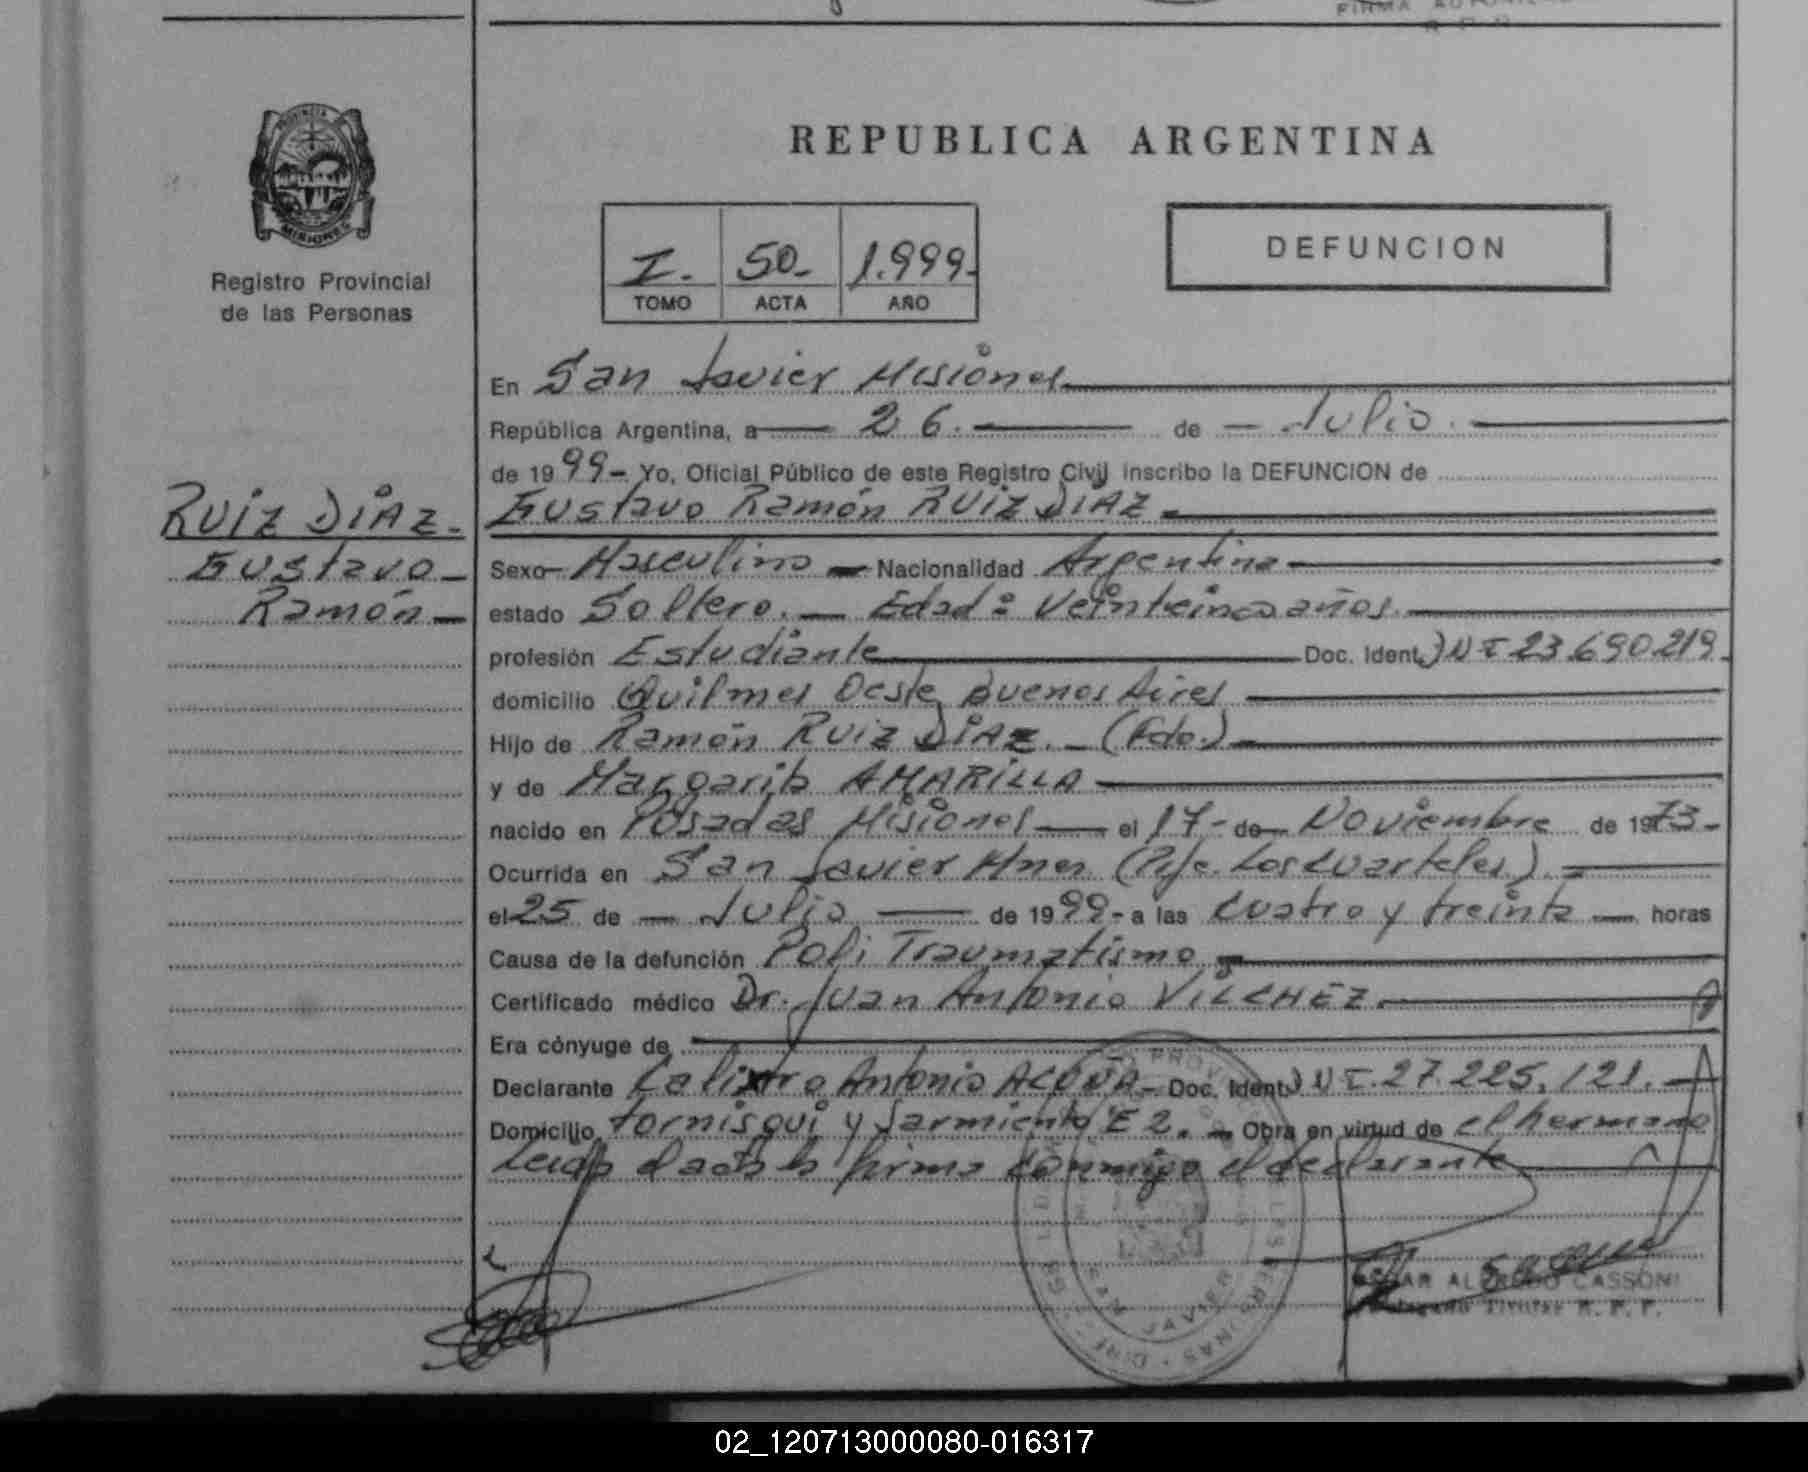 FIRMA
PROVINCIA
MISIONES
Registro Provincial
de las Personas
REPUBLICA ARGENTINA
I. 50- 1.999-
TOMO ACTA AÑO
DEFUNCION
En San Javier Misiones
República Argentina, a 26. de Julio.
de 1999- Yo, Oficial Público de este Registro Civil inscribo la DEFUNCION de
RUIZ DIAZ.
Gustavo
Ramón
Gustavo Ramón RUIZ DIAZ
Sexo Masculino Nacionalidad Argentina
estado Soltero. Edad: Veinticinco años.
profesión Estudiante Doc. Ident. DNI 23.690.219
domicilio Quilmes Oeste Buenos Aires
Hijo de Ramón RUIZ DIAZ. (Fdo.)
y de Margarita AMARILLA
nacido en Posadas Misiones el 17- de Noviembre de 1973-
Ocurrida en San Javier Mnes (Pje. Los Cuarteles)
el 25 de Julio de 1999- a las Cuatro y treinta horas
Causa de la defunción Poli Traumatismo
Certificado médico Dr. Juan Antonio VILCHEZ
Era cónyuge de
Declarante Calixtro Antonio ACUÑA- Doc. Ident. DNI. 27.225.121.
Domicilio y Sarmiento E 2. Obra en virtud de el hermano
Leida el acta la firma conmigo el declarante
SAN JAVIER
OSCAR ALFREDO CASSONI
Delegado Titular R. P. P.
02_120713000080-016317